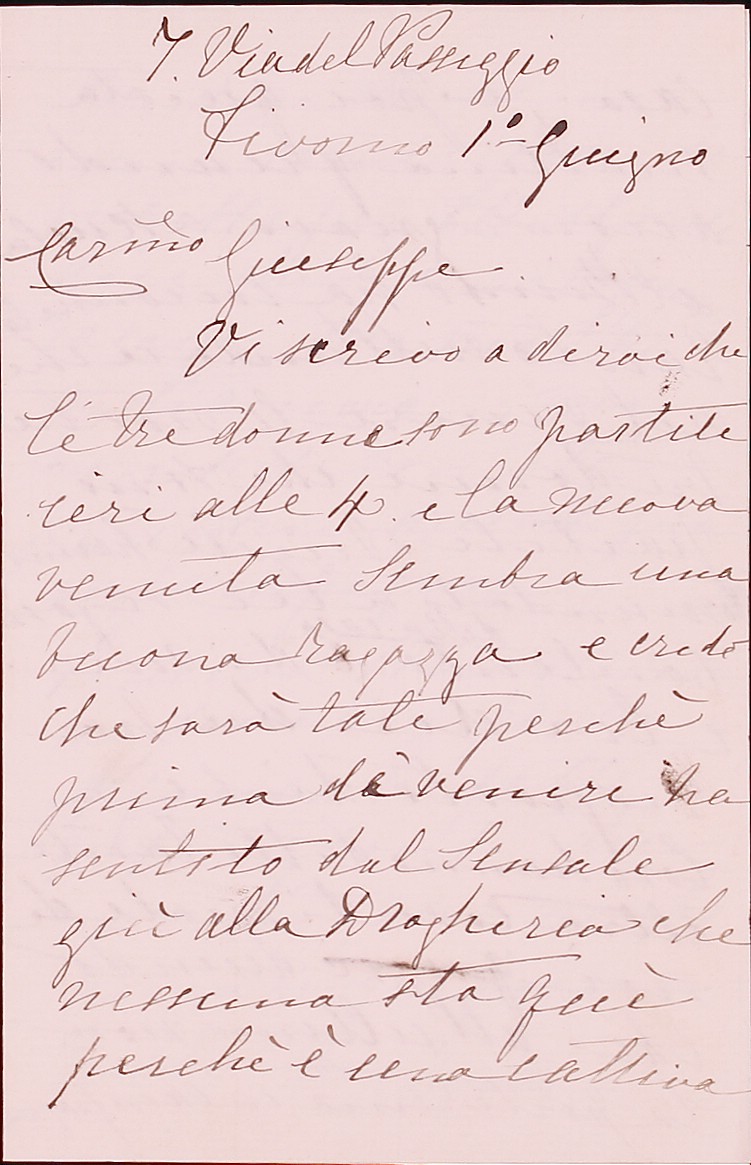 7. Via del Passeggio
Livorno 1º Giugno
Carmo Giuseppe
Vi scrivo a dirvi che
le tre donne sono partite
ieri alle 4. e la nuova
venuta sembra una
buona ragazza e credo
che sarà tale perchè
prima di venire ha
sentito dal Sensale
giù alla Drogheria che
nessuna sta quì
perchè è una cattiva